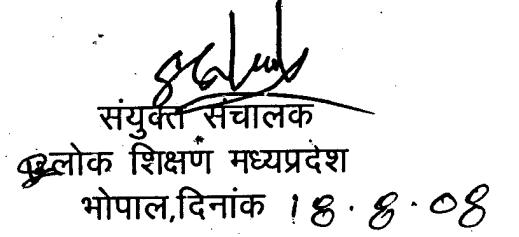 संयुक्त संचालक
लोक शिक्षण मध्यप्रदेश
भोपाल,दिनांक 18.8.08